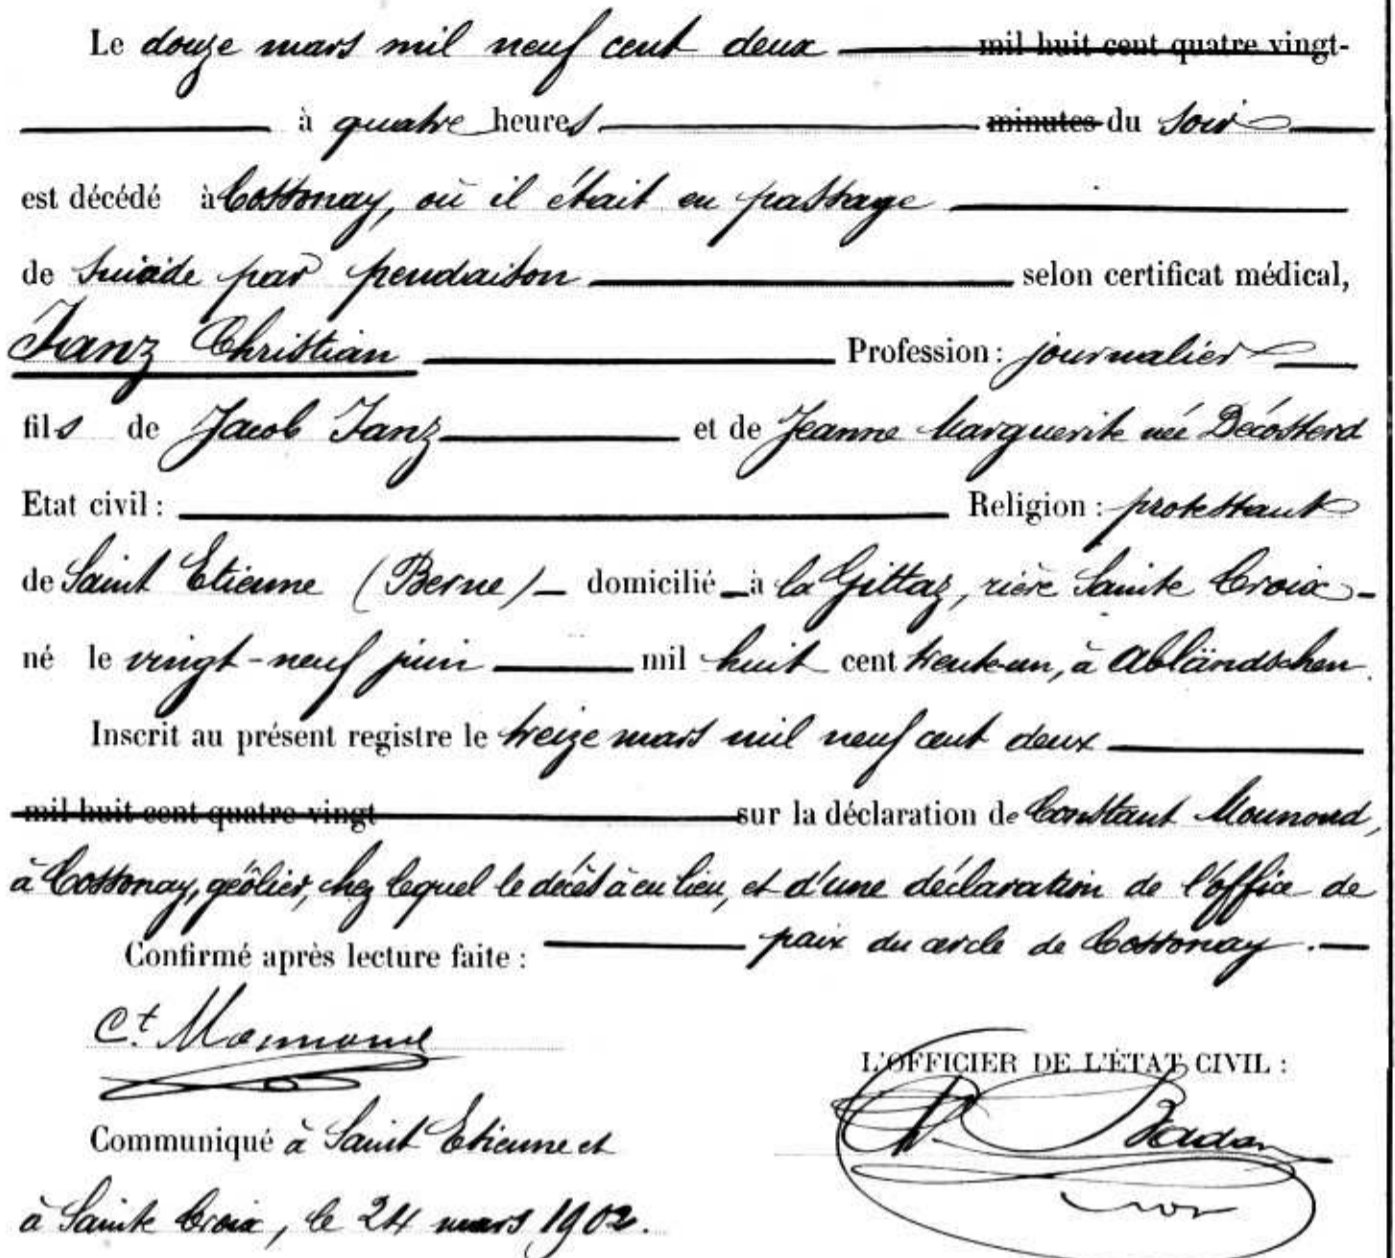 Le douze mars mil neuf cent deux mil huit cent quatre vingt-
à quatre heures minutes du soir
est décédé à Cossonay, où il était en passage
de suicide par pendaison selon certificat médical,
Janz Christian Profession : journalier
fils de Jacob Janz et de Jeanne Marguerite née Décosterd
Etat civil : Religion : protestant
de Saint Etienne (Berne) domicilié à la Gittaz, rière Sainte Croix
né le vingt-neuf juin mil huit cent trente-un, à Abländschen.
Inscrit au présent registre le treize mars mil neuf cent deux
mil huit cent quatre vingt sur la déclaration de Constant Mounoud,
à Cossonay, géôlier, chez lequel le décès à eu lieu, et d'une déclaration de l'office de
paix du cercle de Cossonay.
Confirmé après lecture faite :
Ct. Mounoud
L'OFFICIER DE L'ÉTAT CIVIL :
Badan
Communiqué à Saint Etienne et
à Sainte Croix, le 24 mars 1902.